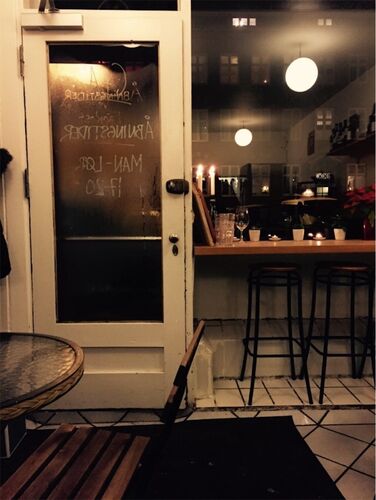 ÅBNINGSTIDER
ÅBNINGSTIDER
MAN-LØR
17-20